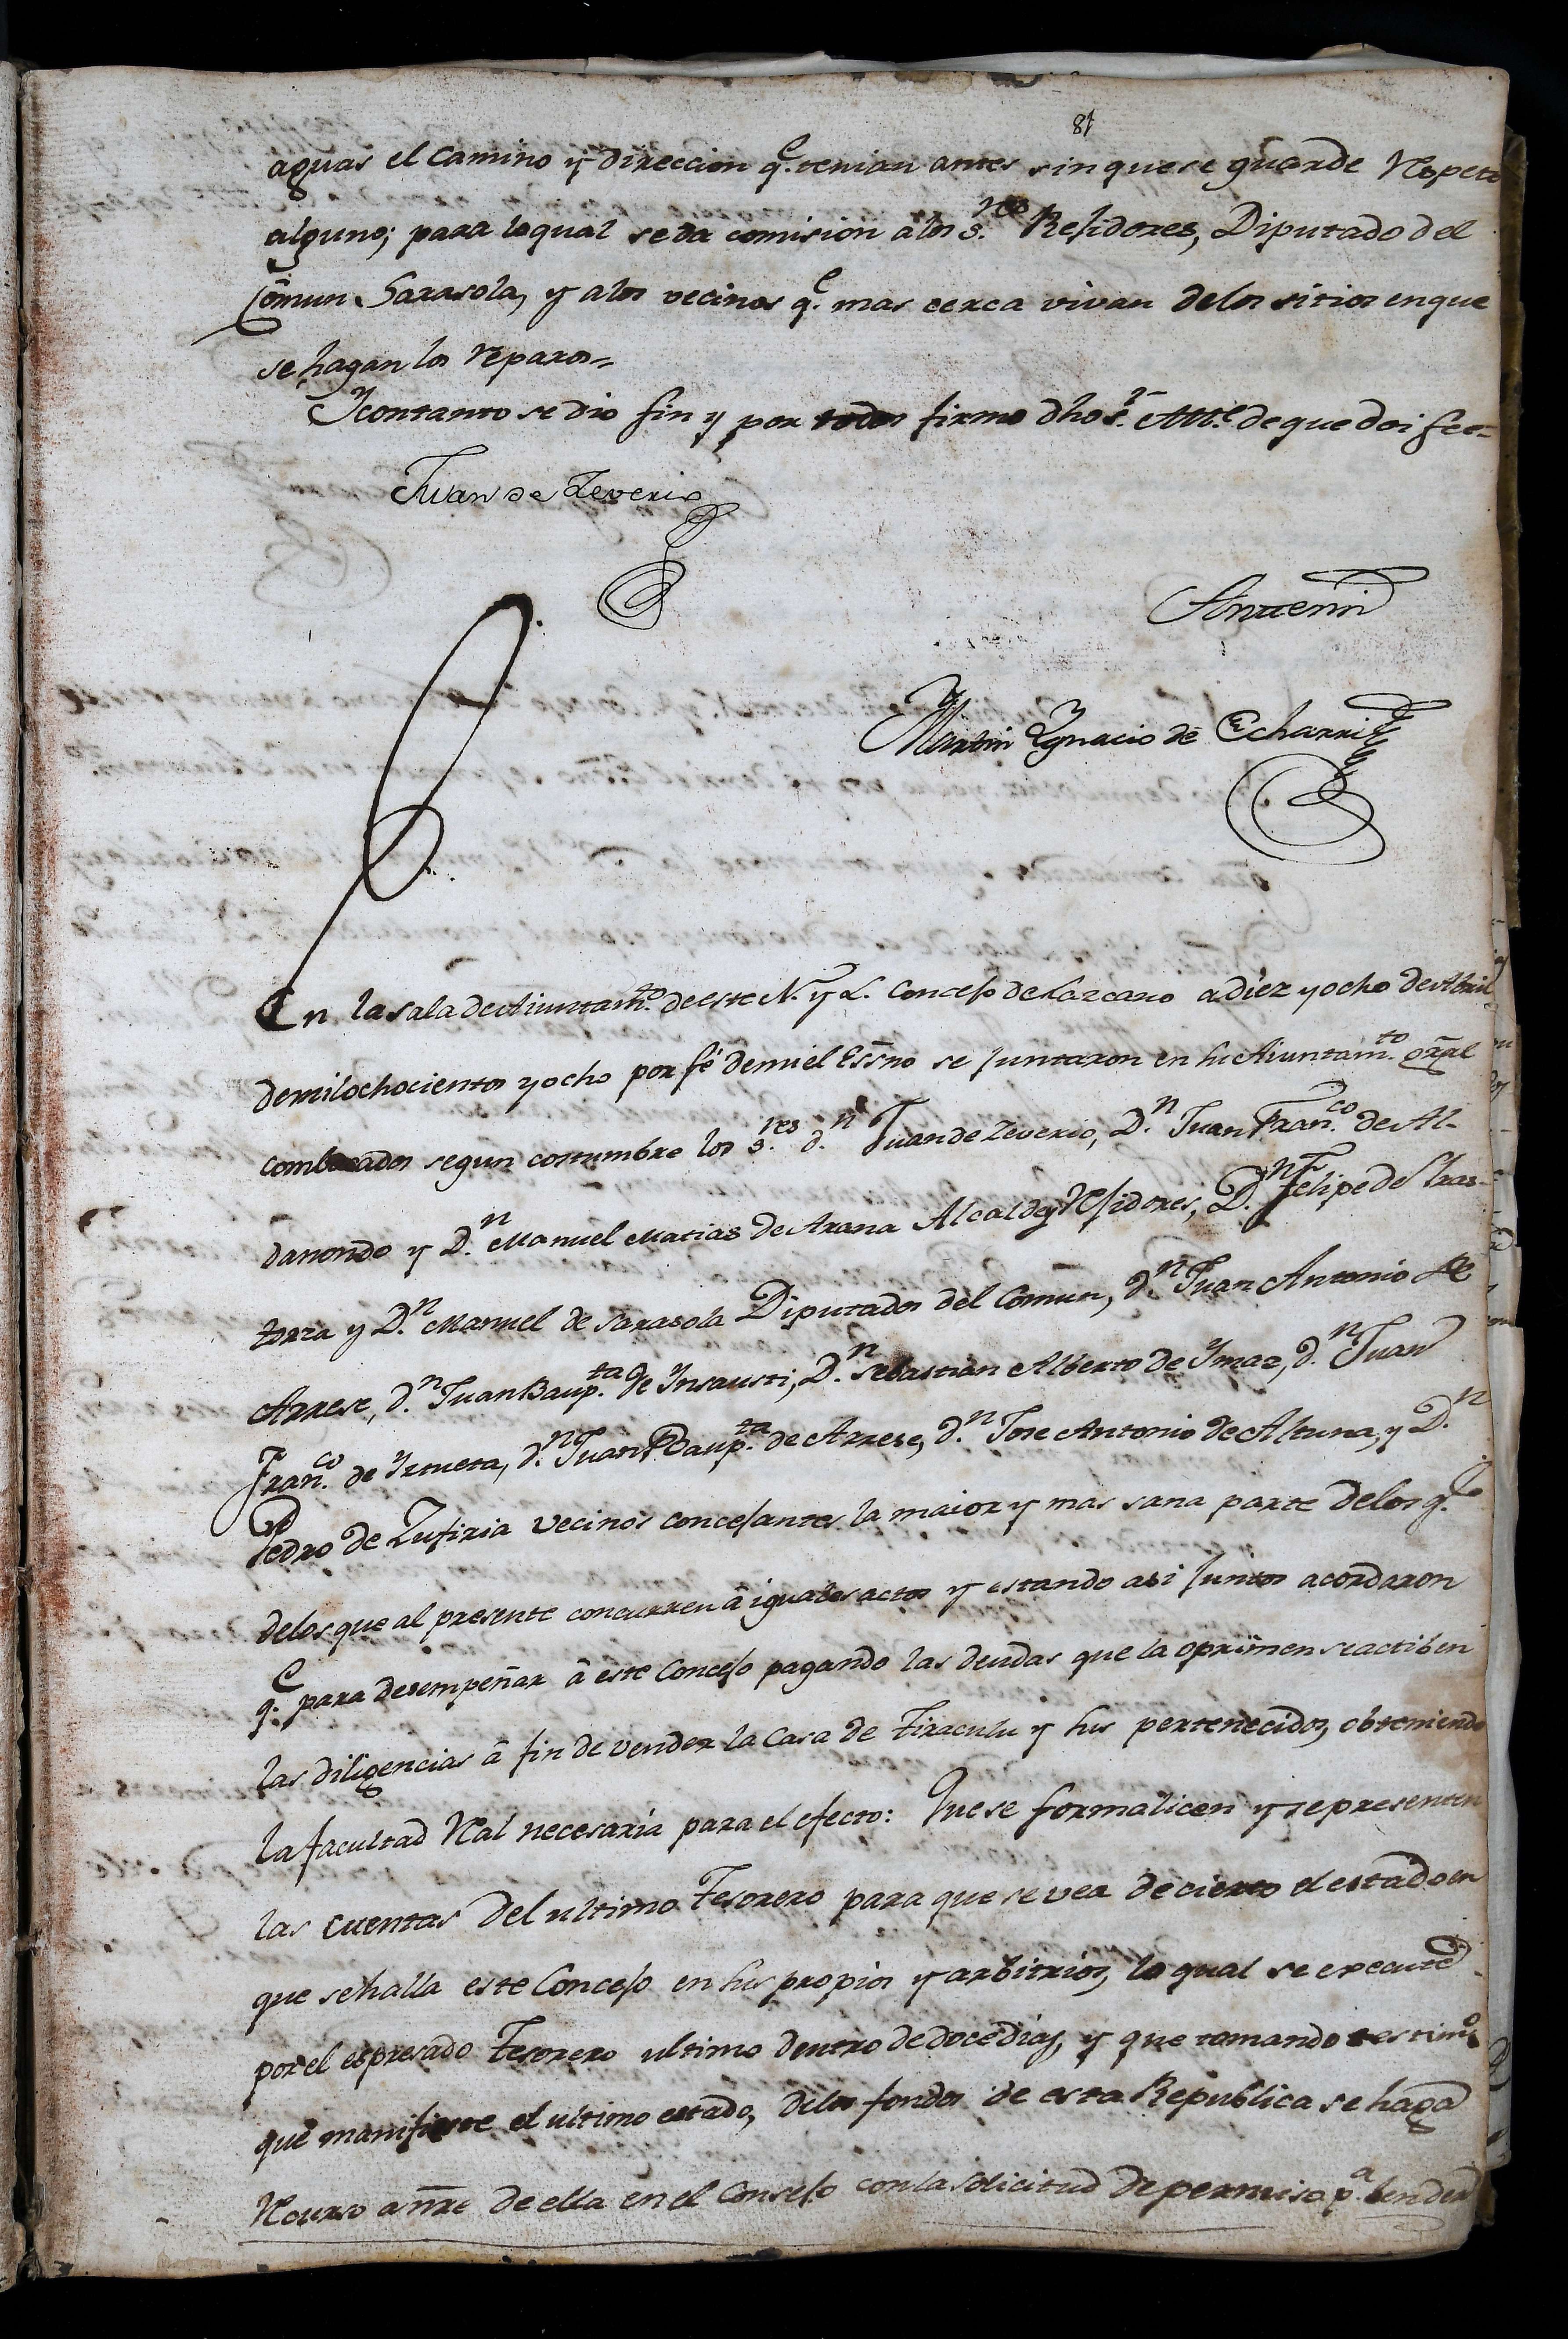 81
aguas el camino y direccion q.e tenian antes sin que se guarde Respeto
alguno; para lo qual se da comision a los s.res Rejidores, Diputado del
Comun Sarasola, y a los vecinos q.e mas cerca vivan de los sitios en que
se hagan los reparos=
Y con tanto se dio fin y por todos firmo dho s.r Alt.e de que doi fee=
Juan de Zeverio
Antemi
Martin Ygnacio de Echarri
En la sala de Aiuntam.to de este N. y L. Concejo de Lazcano a diez y ocho de Abril
de mil ochocientos y ocho por fé de mi el Essno se juntaron en su Aiuntam.to gral
combocados segun costumbre los s.res d.n Juan de Zeverio, D.n Juan Fran.co de Al-
danondo y D.n Manuel Matias de Arana Alcalde y Rejidores, D.n Felipe de Iraz-
torza y D.n Manuel de Sarasola Diputados del Comun, d.n Juan Antonio de
Arrese, d.n Juan Baup.ta de Ynsausti, D.n Sebastian Alberto de Ymaz, d.n Juan
Fran.co de Yztueta, d.n Juan Baup.ta de Arrese, d.n Jose Antonio de Altuna, y D.n
Pedro de Zufiria vecinos concejantes la maior y mas sana parte de los q.e
de los que al presente concurren â iguales actos y estando asi juntos acordaron
q.e para desempeñar â este Concejo pagando las deudas que la oprimen se actiben
las diligencias â fin de vender la Casa de Tiraculu y sus pertenecidos, obteniendo
la facultad Ral necesaria para el efecto: Que se formalicen y representen
las cuentas del ultimo Tesorero para que se vea de cierto el estado en
que se halla este Concejo en sus propios y arbitrios, lo qual se execute
por el espresado Tesorero ultimo dentro de doce dias, y que tomando testim.o
que manifieste el ultimo estado, de los fondos de esta Republica se haga
Recurso a nre de ella en el Consejo con la solicitud de permiso p.a bender